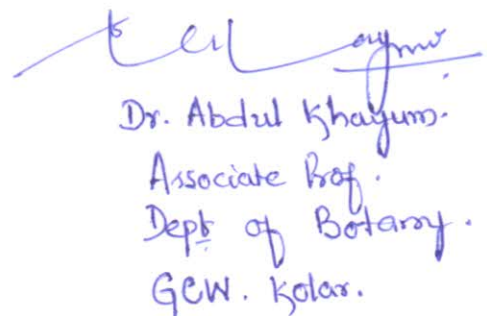 Dr. Abdul Khayum.
Associate Prof.
Dept of Botany.
GCW. Kolar.